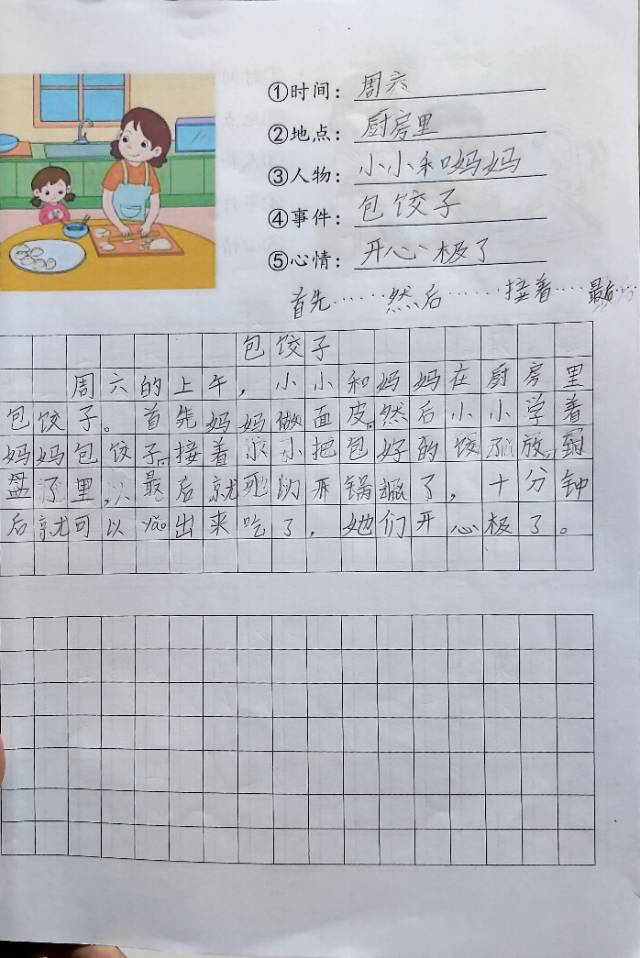 ①时间：周六
②地点：厨房里
③人物：小小和妈妈
④事件：包饺子
⑤心情：开心极了
首先……然后……接着……最后……
包饺子
周六的上午，小小和妈妈在厨房里
包饺子。首先妈妈做面皮。然后小小学着
妈妈包饺子。接着小小把包好的饺子放到
盘子里，最后就可以开锅煮了，十分钟
后就可以lāo出来吃了，她们开心极了。